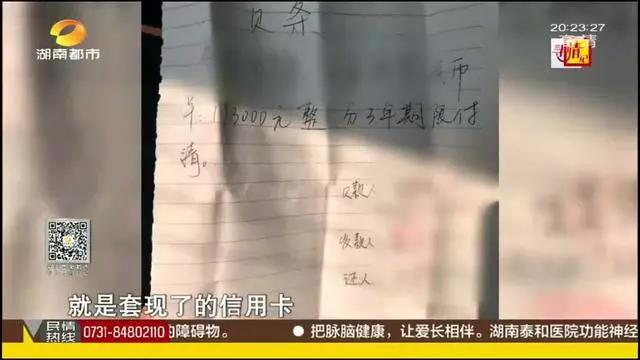 湖南都市
20:23:27
欠条
币
113000元整 分3年期限付
清。
欠款人
收款人
证人
就是套现了的信用卡
民情热线
0731-84802110
的障碍物。
把脉脑健康，让爱长相伴。湖南泰和医院功能神经